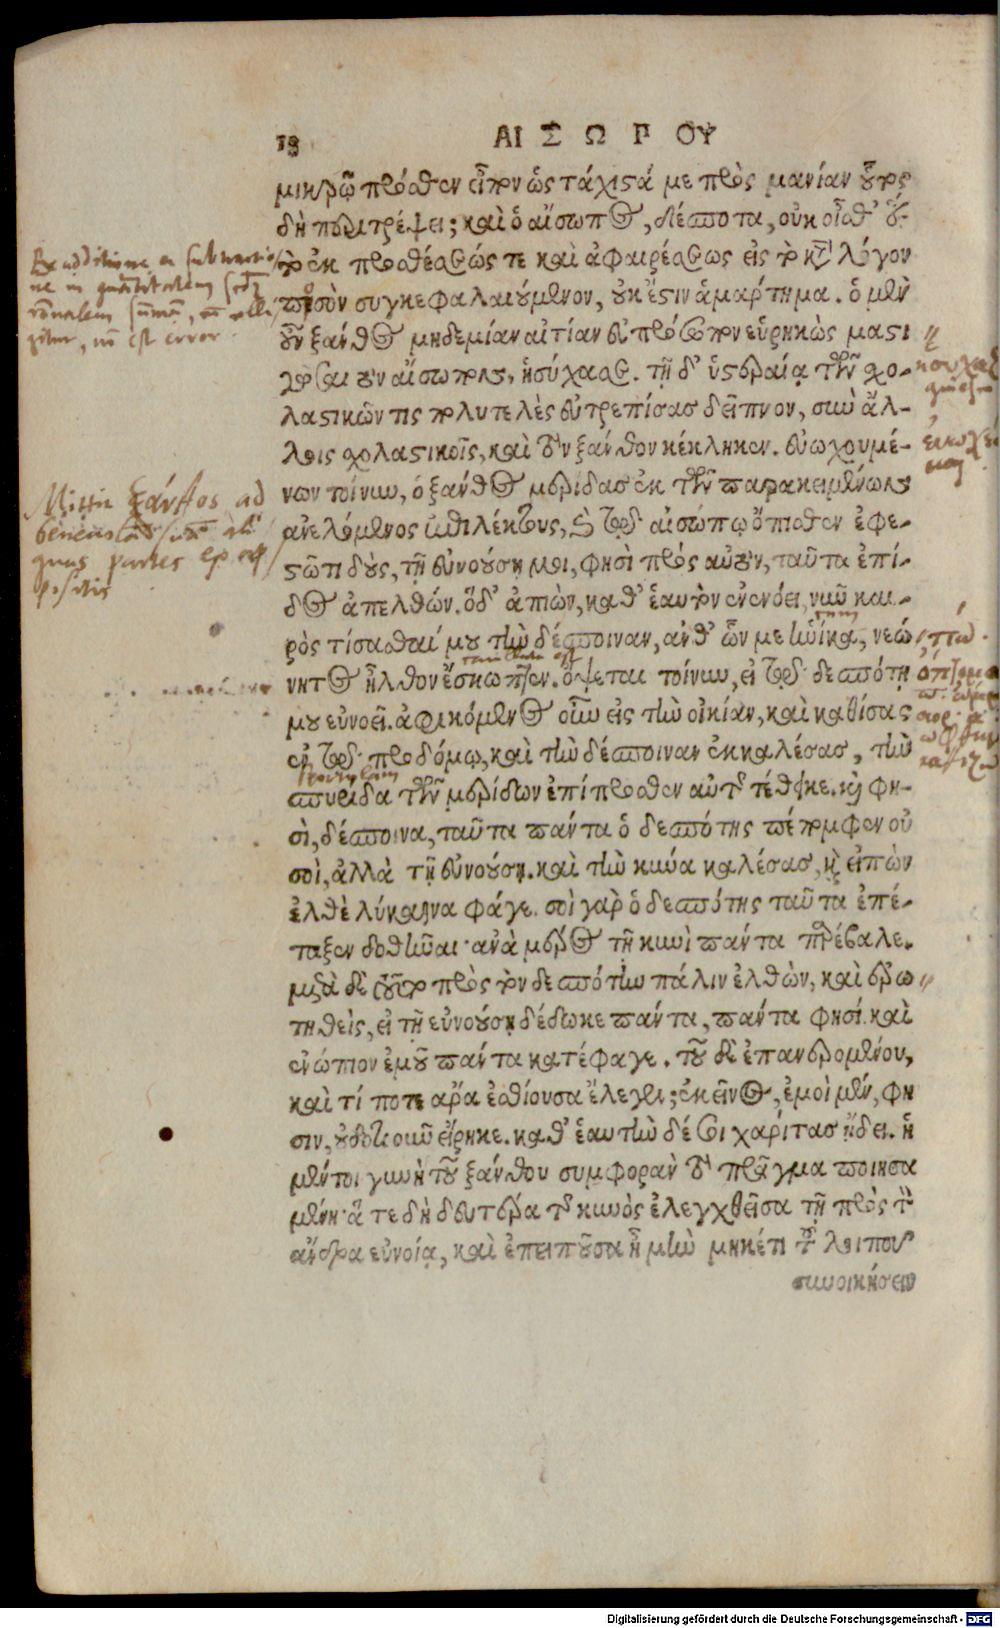 18 ΑΙΣΩΠΟΥ
μικρῷ πρόσθεν εἶπον ὡς τάχιστά με πρὸς μανίαν οὗτος
δὴ περιτρέψει; καὶ ὁ αἴσωπος, δέσποτα, οὐκ οἶσθ᾽
ἐκ προσθέσεώς τε καὶ ἀφαιρέσεως εἰς τὸ κατὰ λόγον
ποσὸν συγκεφαλαιούμενον, οὐκ ἔστιν ἁμάρτημα. ὁ μὲν
οὖν ξάνθος μηδεμίαν αἰτίαν εὐπρόσωπον εὑρηκὼς μαστι
γῶσαι τὸν αἴσωπον, ἡσύχασε. τῇ δ᾽ ὑστεραίᾳ τῶν σχο-
λαστικῶν τις πολυτελὲς εὐτρεπίσας δεῖπνον, σὺν ἄλ-
λοις σχολαστικοῖς, καὶ τὸν ξάνθον κέκληκεν. εὐωχουμέ-
νων τοίνυν, ὁ ξάνθος μερίδας ἐκ τῶν παρακειμένων
ἀνελόμενος ἐπιλέκτους, καὶ τῷ αἰσώπῳ ὄπισθεν ἐφε-
στῶτι δοὺς, τῇ εὐνούσῃ μοι, φησὶ πρὸς αὐτὸν, ταῦτα ἐπί-
δος ἀπελθών. ὅδ᾽ ἀπιὼν, καθ᾽ ἑαυτὸν ἐνενόει, νῦν και-
ρὸς τίσασθαί μου τὴν δέσποιναν, ἀνθ᾽ ὧν με ἡνίκα, νεώ
νητος ἦλθον ἔσκωπτεν. ὄψεται τοίνυν, εἰ τῷ δεσπότῃ
μου εὐνοεῖ. ἀφικόμενος οὖν εἰς τὴν οἰκίαν, καὶ καθίσας
ἐν τῷ προδόμῳ, καὶ τὴν δέσποιναν ἐκκαλέσας, τὴν
σπυρίδα τῶν μερίδων ἐπίπροσθεν αὐτῆς τέθηκε. καὶ φη-
σὶ, δέσποινα, ταῦτα πάντα ὁ δεσπότης πέπομφεν οὐ
σοὶ, ἀλλὰ τῇ εὐνούσῃ. καὶ τὴν κύνα καλέσας, καὶ εἰπὼν
ἐλθὲ λύκαινα φάγε. σοὶ γὰρ ὁ δεσπότης ταῦτα ἐπέ-
ταξεν δοθῆναι· ἀνὰ μέρος τῇ κυνὶ πάντα προέβαλε.
μετὰ δὲ τοῦτο πρὸς τὸν δεσπότην πάλιν ἐλθὼν, καὶ ἐρω
τηθεὶς, εἰ τῇ εὐνούσῃ δέδωκε πάντα, πάντα φησί. καὶ
ἐνώπιον ἐμοῦ πάντα κατέφαγε. τοῦ δὲ ἐπανερομένου,
καὶ τί ποτε ἄρα ἐσθίουσα ἔλεγεν; ἐκεῖνος, ἐμοὶ μὲν, φη
σιν, οὐδοτιοῦν εἴρηκε. καθ᾽ ἑαυτὴν δέ σοι χάριτας ᾔδει. ἡ
μέντοι γυνὴ τοῦ ξάνθου συμφορὰν τὸ πρᾶγμα ποιησα
μένη· ἅ τε δὴ δευτέρα τῆς κυνὸς ἐλεγχθεῖσα τῇ πρὸς τὸν
ἄνδρα εὐνοίᾳ, καὶ ἐπειποῦσα ἦ μὴν μηκέτι τοῦ λοιποῦ
συνοικήσειν
Ex additione
non est error
Mittit Xanthos ad
partes
Digitalisierung gefördert durch die Deutsche Forschungsgemeinschaft - DFG